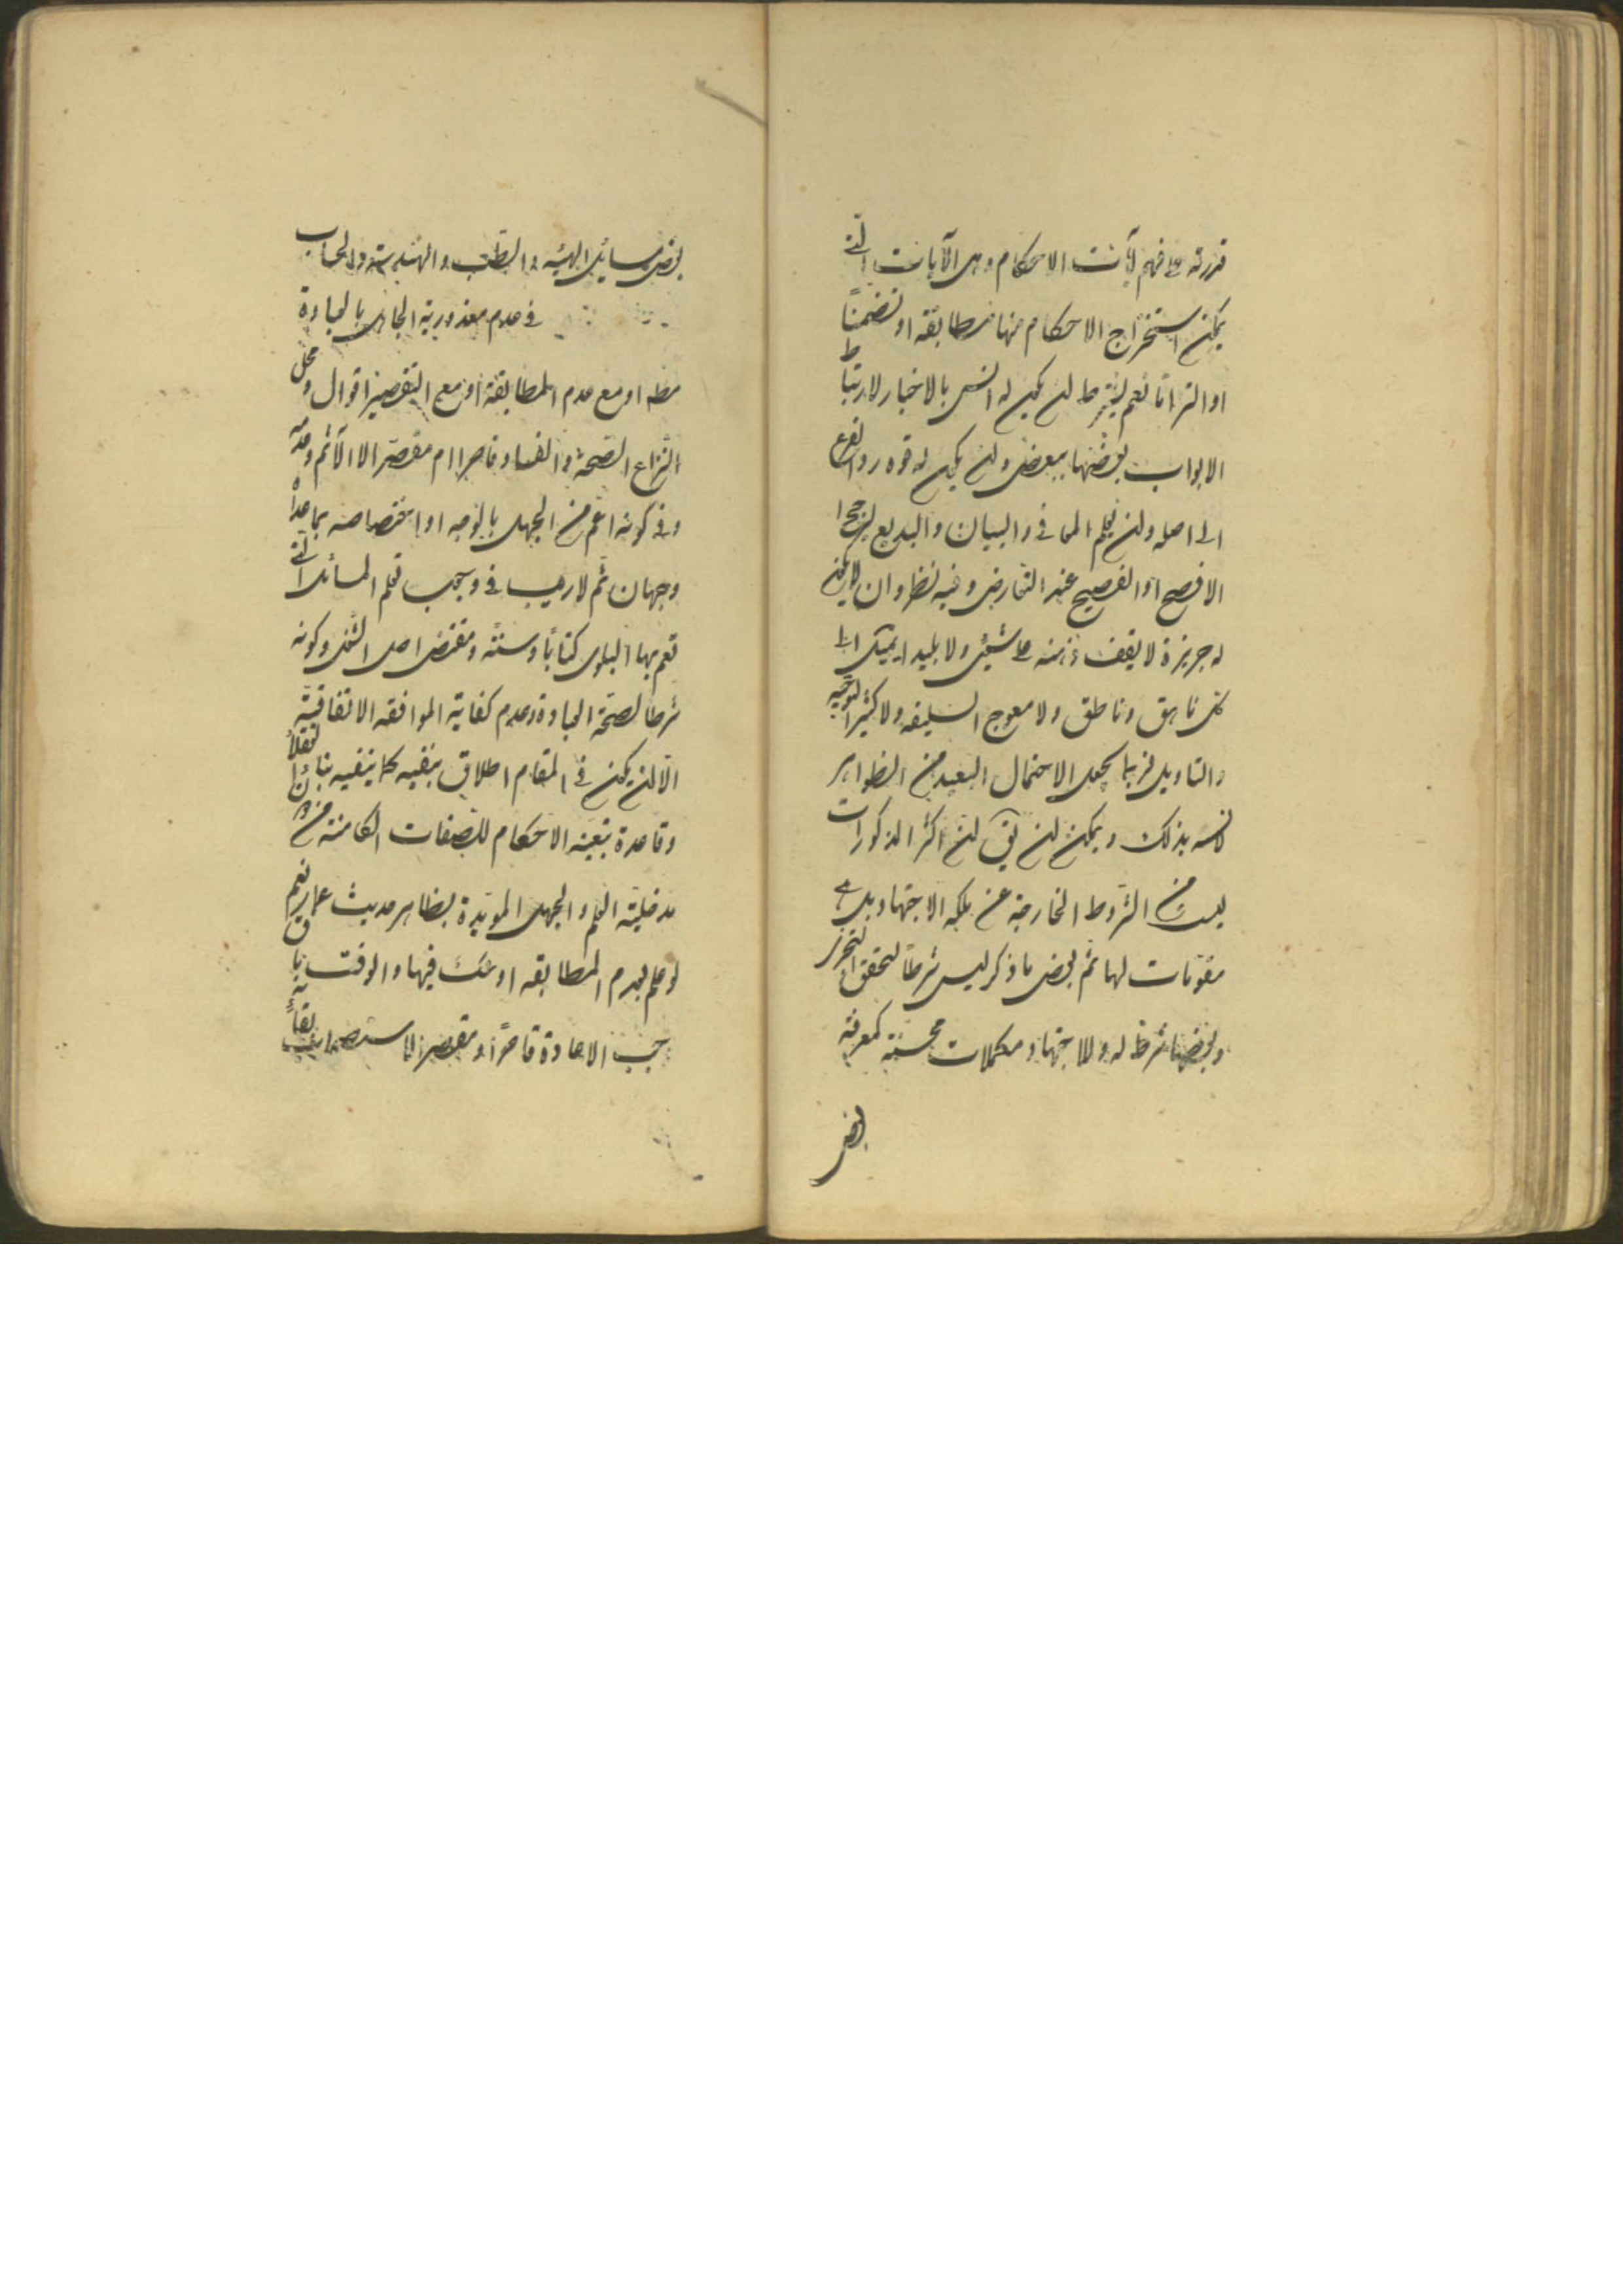 قدرته على فهم آيات الاحكام وهى الآيات التى
يمكن استخراج الاحكام منها مطابقه او تضمنًا
او التزامًا نعم يشترط ان يكون له انس بالاخبار لارتباط
الابواب بعضها ببعض وان يكون له قوه رد الفرع
الى اصله وان يعلم المعانى والبيان والبديع ليرجح
الافصح او الفصيح عند التعارض وفيه نظر وان لا يكون
له جربزة لا يقف ذهنه على شيئ ولا بليدا يميل الى
كل ناهق وناطق ولا معوج السليقه ولا كثير التوجيه
والتاويل فربما يجعل الاحتمال البعيد من الظواهر
لانسه بذلك ويمكن ان يق ان اكثر المذكورات
ليست من الشروط الخارجة عن ملكه الاجتهاد بل هى
مقومات لها ثم بعض ما ذكر ليس شرطًا لتحقق التجزى
وبعضها شرط له وللاجتهاد مكملات محسنة كمعرفة
بعض
بعض مسائل الهيئه والطب والهندسة والحساب
فى عدم معذورية الجاهل بالعبادة
مطه او مع عدم المطابقة او مع التقصير اقوال ومحل
النزاع الصحة والفساد قاصرا ام مقصرا لا الاثم وعدمه
وفى كونه اعم من الجهل بالوجه او اختصاصه بما عداه
وجهان ثم لا ريب فى وجوب تعلم المسائل التى
تعم بها البلوى كتابًا وسنتًه ومقتضى اصل الشغل وكونه
شرطا لصحة العبادة وعدم كفاية الموافقه الاتفاقية
الا ان يكون فى المقام اطلاق ينفيه كما ينفيه بناء العقلاء
وقاعدة تبعية الاحكام للصفات الكامنة من دون
مدخلية العلم والجهل المويدة بظاهر حديث عمار نعم
لو علم بعدم المطابقه او شك فيها والوقت باق
يجب الاعادة قاصرًا او مقصرا لاستصحاب بقاء